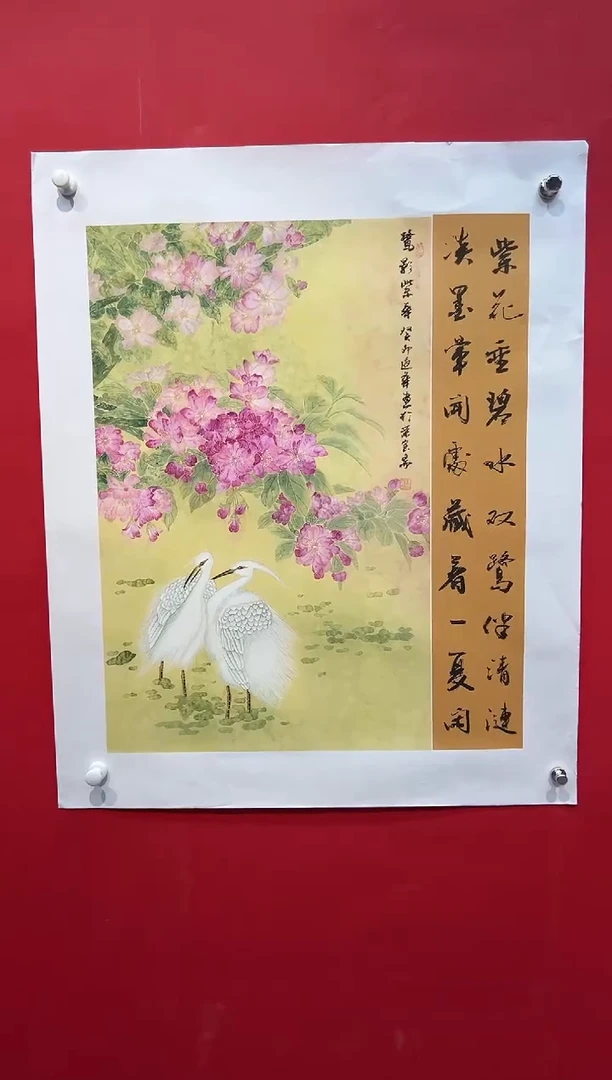 紫花垂碧水双鹭伴清涟
淡墨笔间處藏着一夏闲
鹭影紫 癸卯